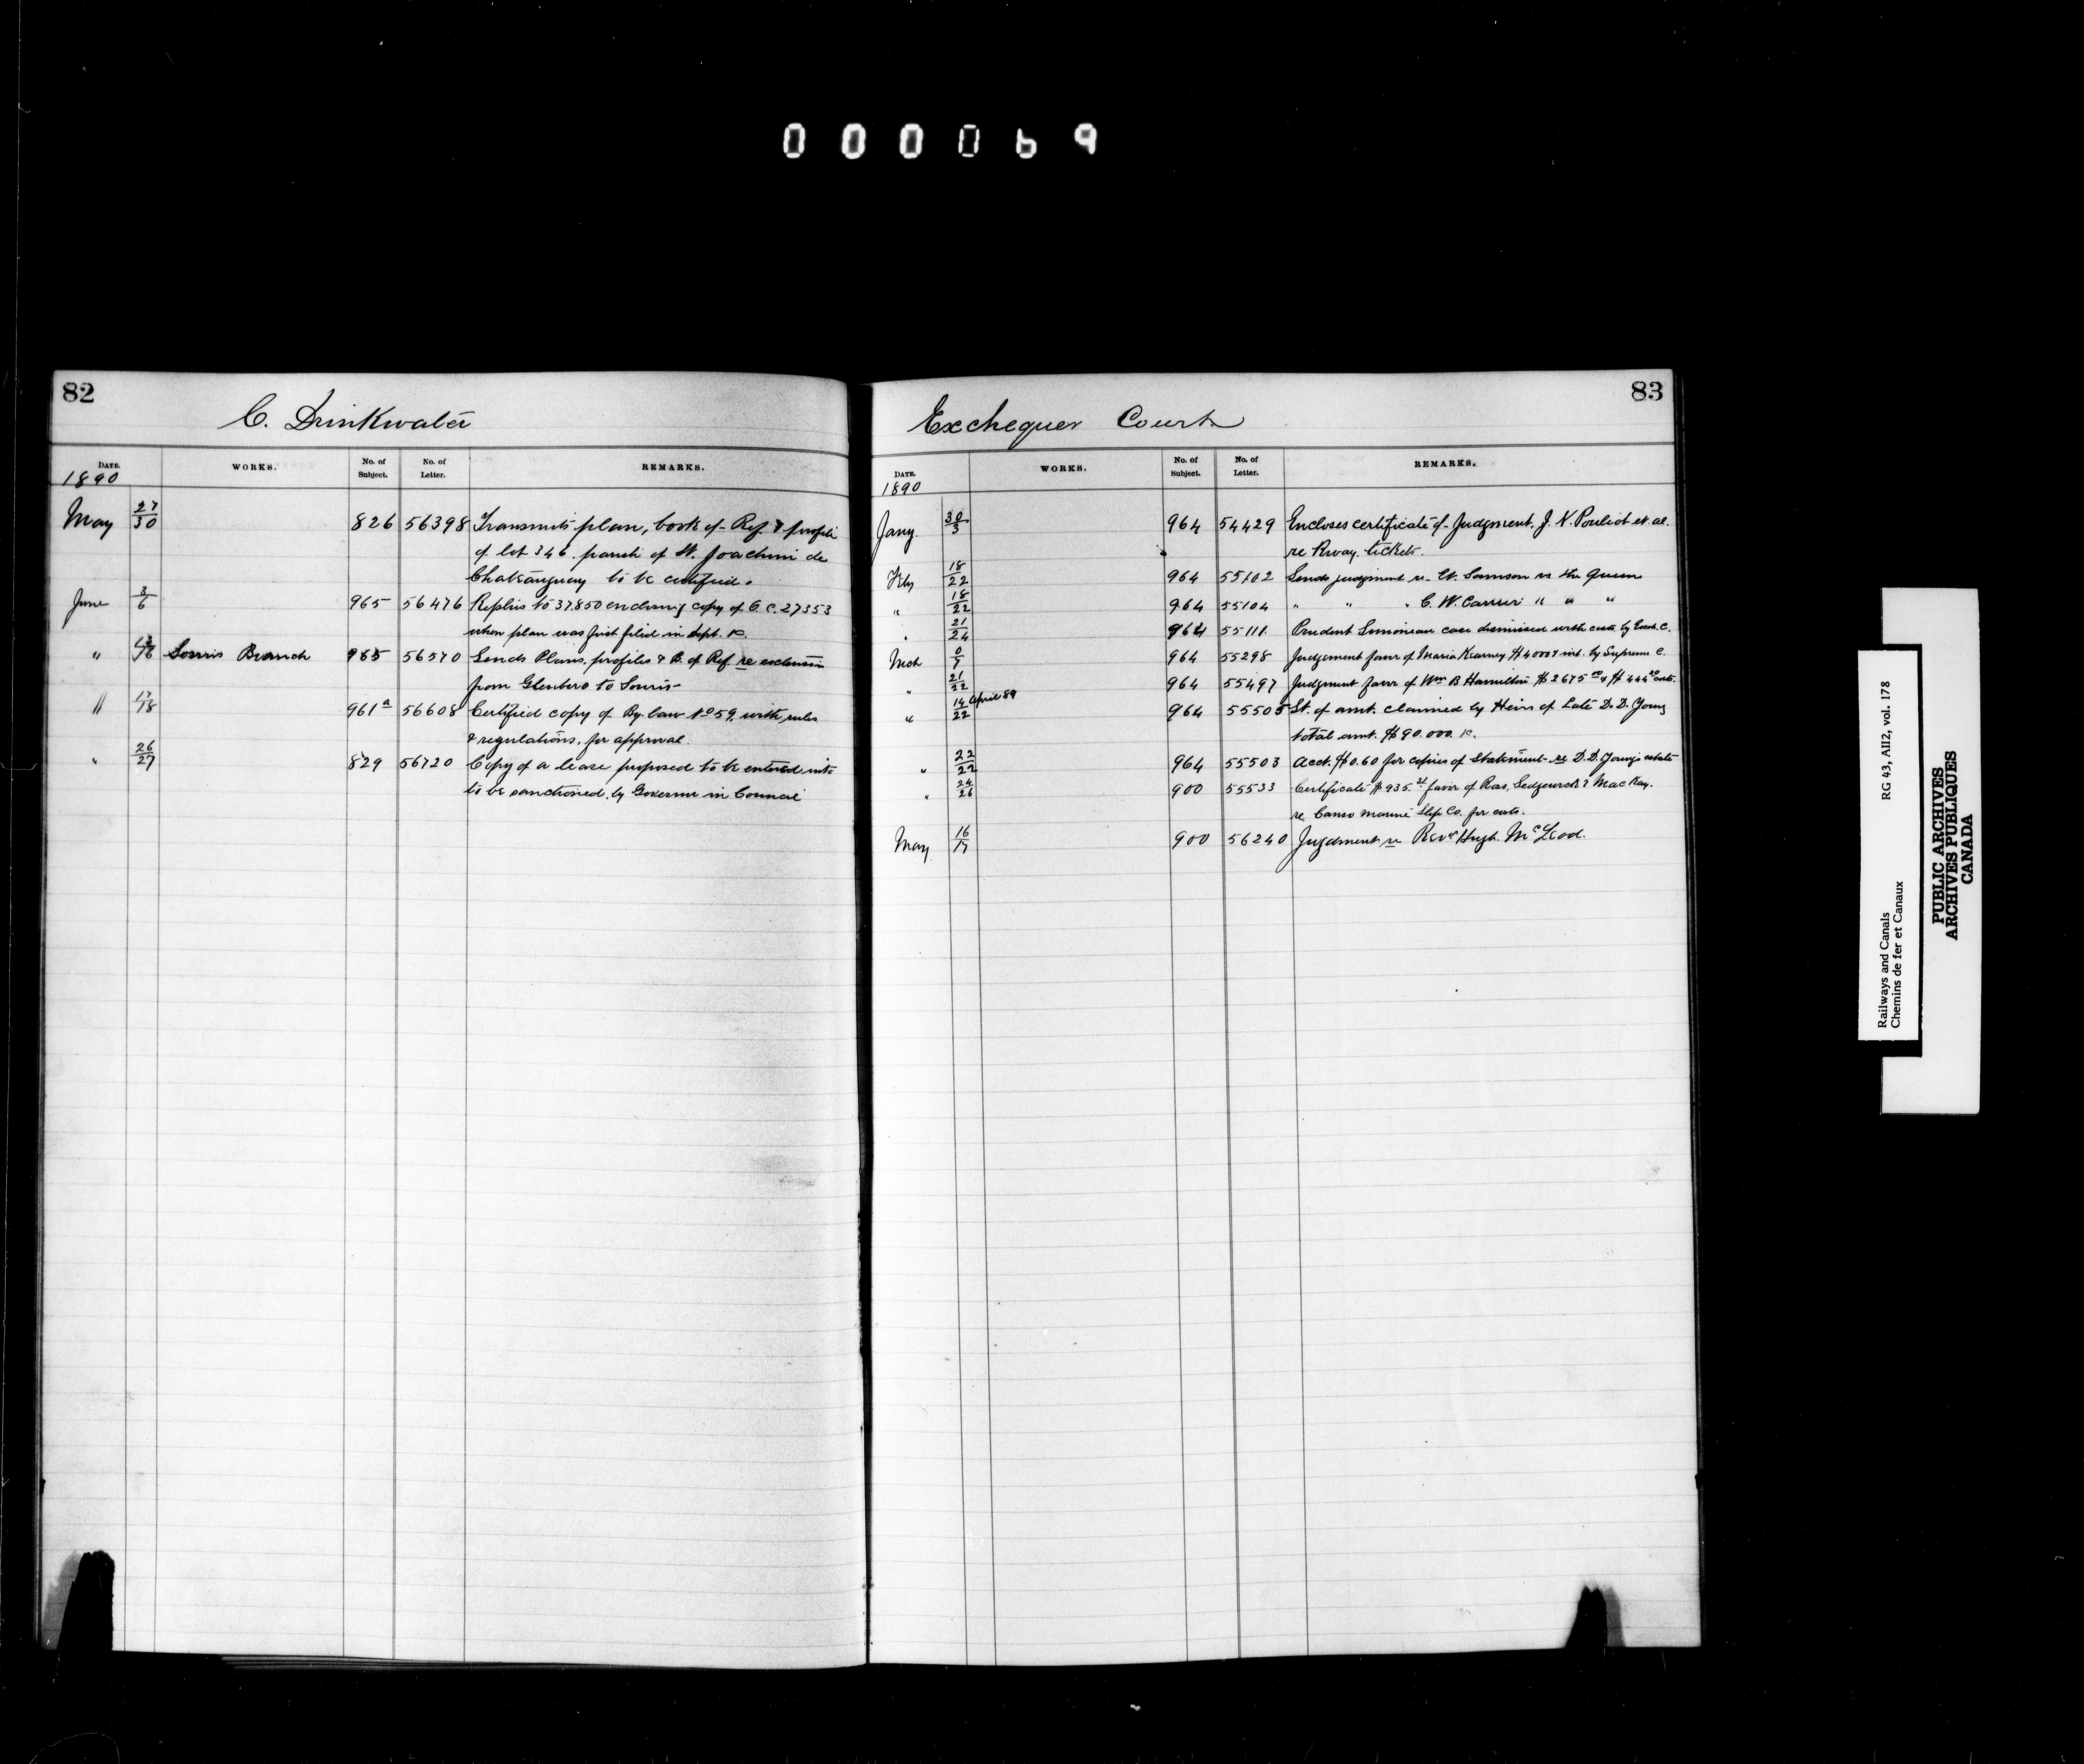 000069
82
C. Drinkwater
DATE. WORKS. No. of Subject. No. of Letter. REMARKS.
1890
May 27/30 826 56398 Transmits plan, book of Ref. & profile
of lot 346. parish of St. Joachim de
Chateauguay to be certified.
June 3/6 965 56476 Replies to 37850 enclosing copy of O.C. 27353
when plan was first filed in Sept. &c.
" Souris Branch 965 56570 Sends Plans, profiles & B. of Ref. re extension
from Glenboro to Souris
" 17/18 961a 56608 Certified copy of By-law No 59, with rules
& regulations, for approval.
" 26/27 829 56720 Copy of a lease proposed to be entered into
to be sanctioned by Governor in Council
83
Exchequer Court
DATE. WORKS. No. of Subject. No. of Letter. REMARKS.
1890
Jany. 30/3 964 54429 Encloses certificate of Judgment, J. N. Pouliot et al.
re Rway. tickets.
Feby 18/22 964 55102 Sends judgment re Samson vs the Queen
" 18/22 964 55104 " " " C. W. Carrier " " "
" 21/24 964 55111 Prudent Simoneau case dismissed with costs by Exch. C.
Mch 964 55298 Judgement favor of Maria Kearney $4000 & int. by Supreme C.
" 21/22 964 55497 Judgment favor of Wm B Hamilton $2675 00 & $444 20 costs.
" 14 April 89/22 964 55505 St. of amt. claimed by Heirs of Late D. D. Young
total amt. $90.000. &c.
" 22/22 964 55503 Acct. $0.60 for copies of Statement re D. D. Young's estate
" 24/26 900 55533 Certificate $935. favor of Ross, Sedgewick & MacKay.
re Canso Marine Slip Co. for costs.
May 16/17 900 56240 Jugdment re Revd Hugh McLeod.
Railways and Canals
Chemins de fer et Canaux
RG 43, AII2, vol. 178
PUBLIC ARCHIVES
ARCHIVES PUBLIQUES
CANADA